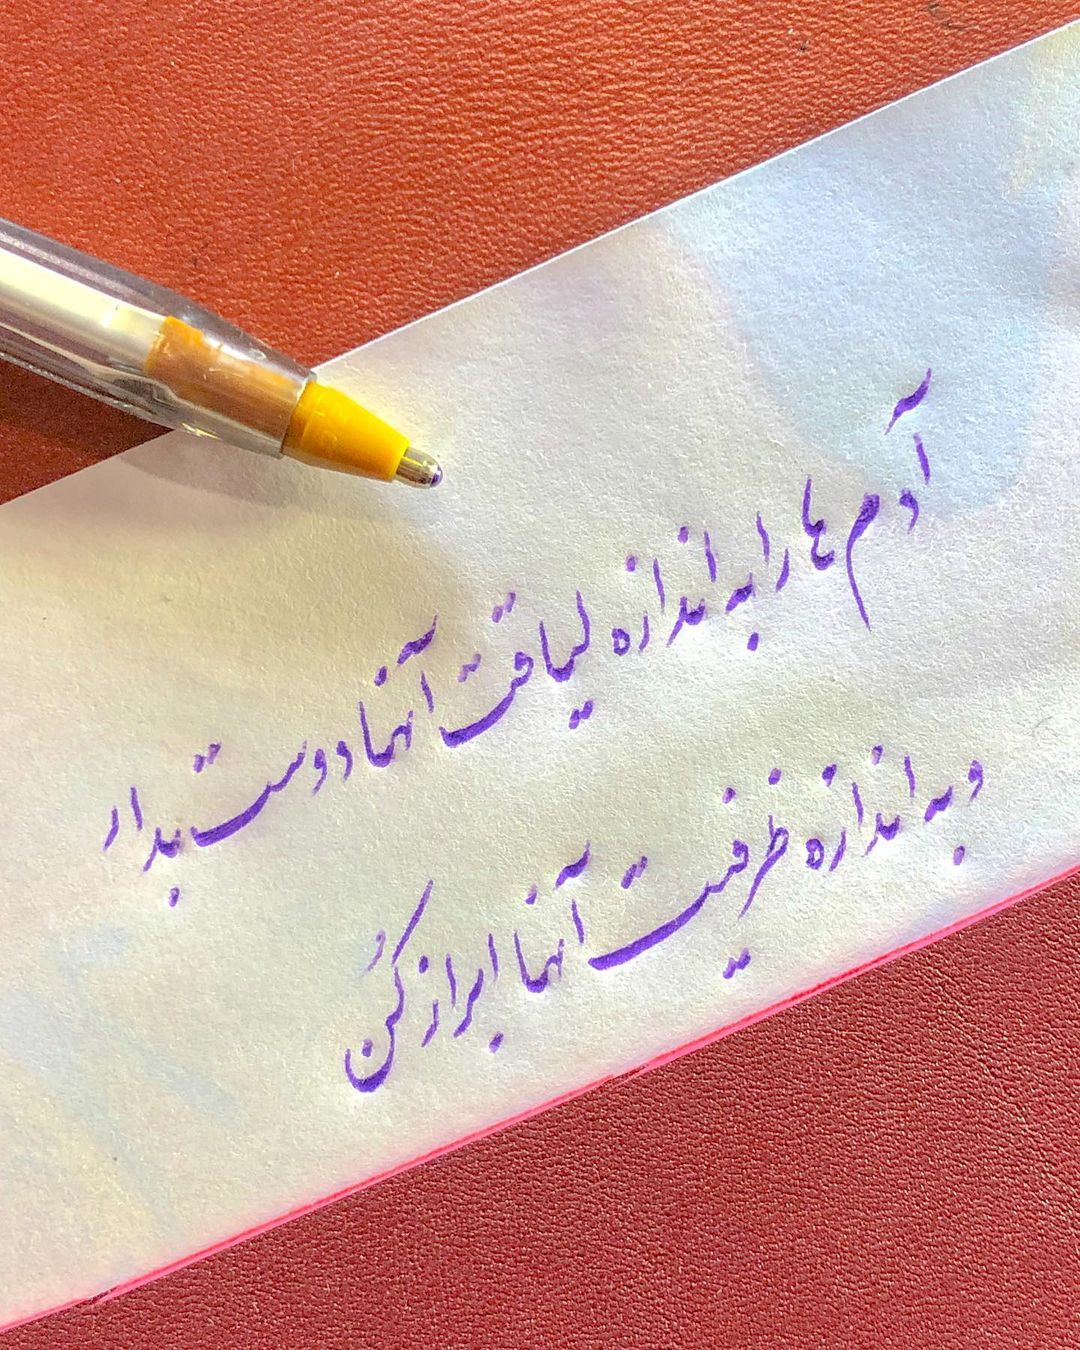 آدم ها را به اندازه لیاقت آنها دوست بدار
و به اندازه ظرفیت آنها ابراز کُن